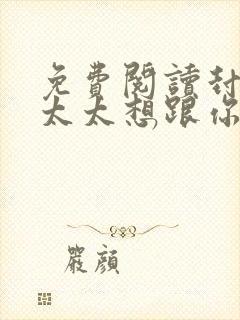 免費閱讀封
太太想跟你
嚴顏